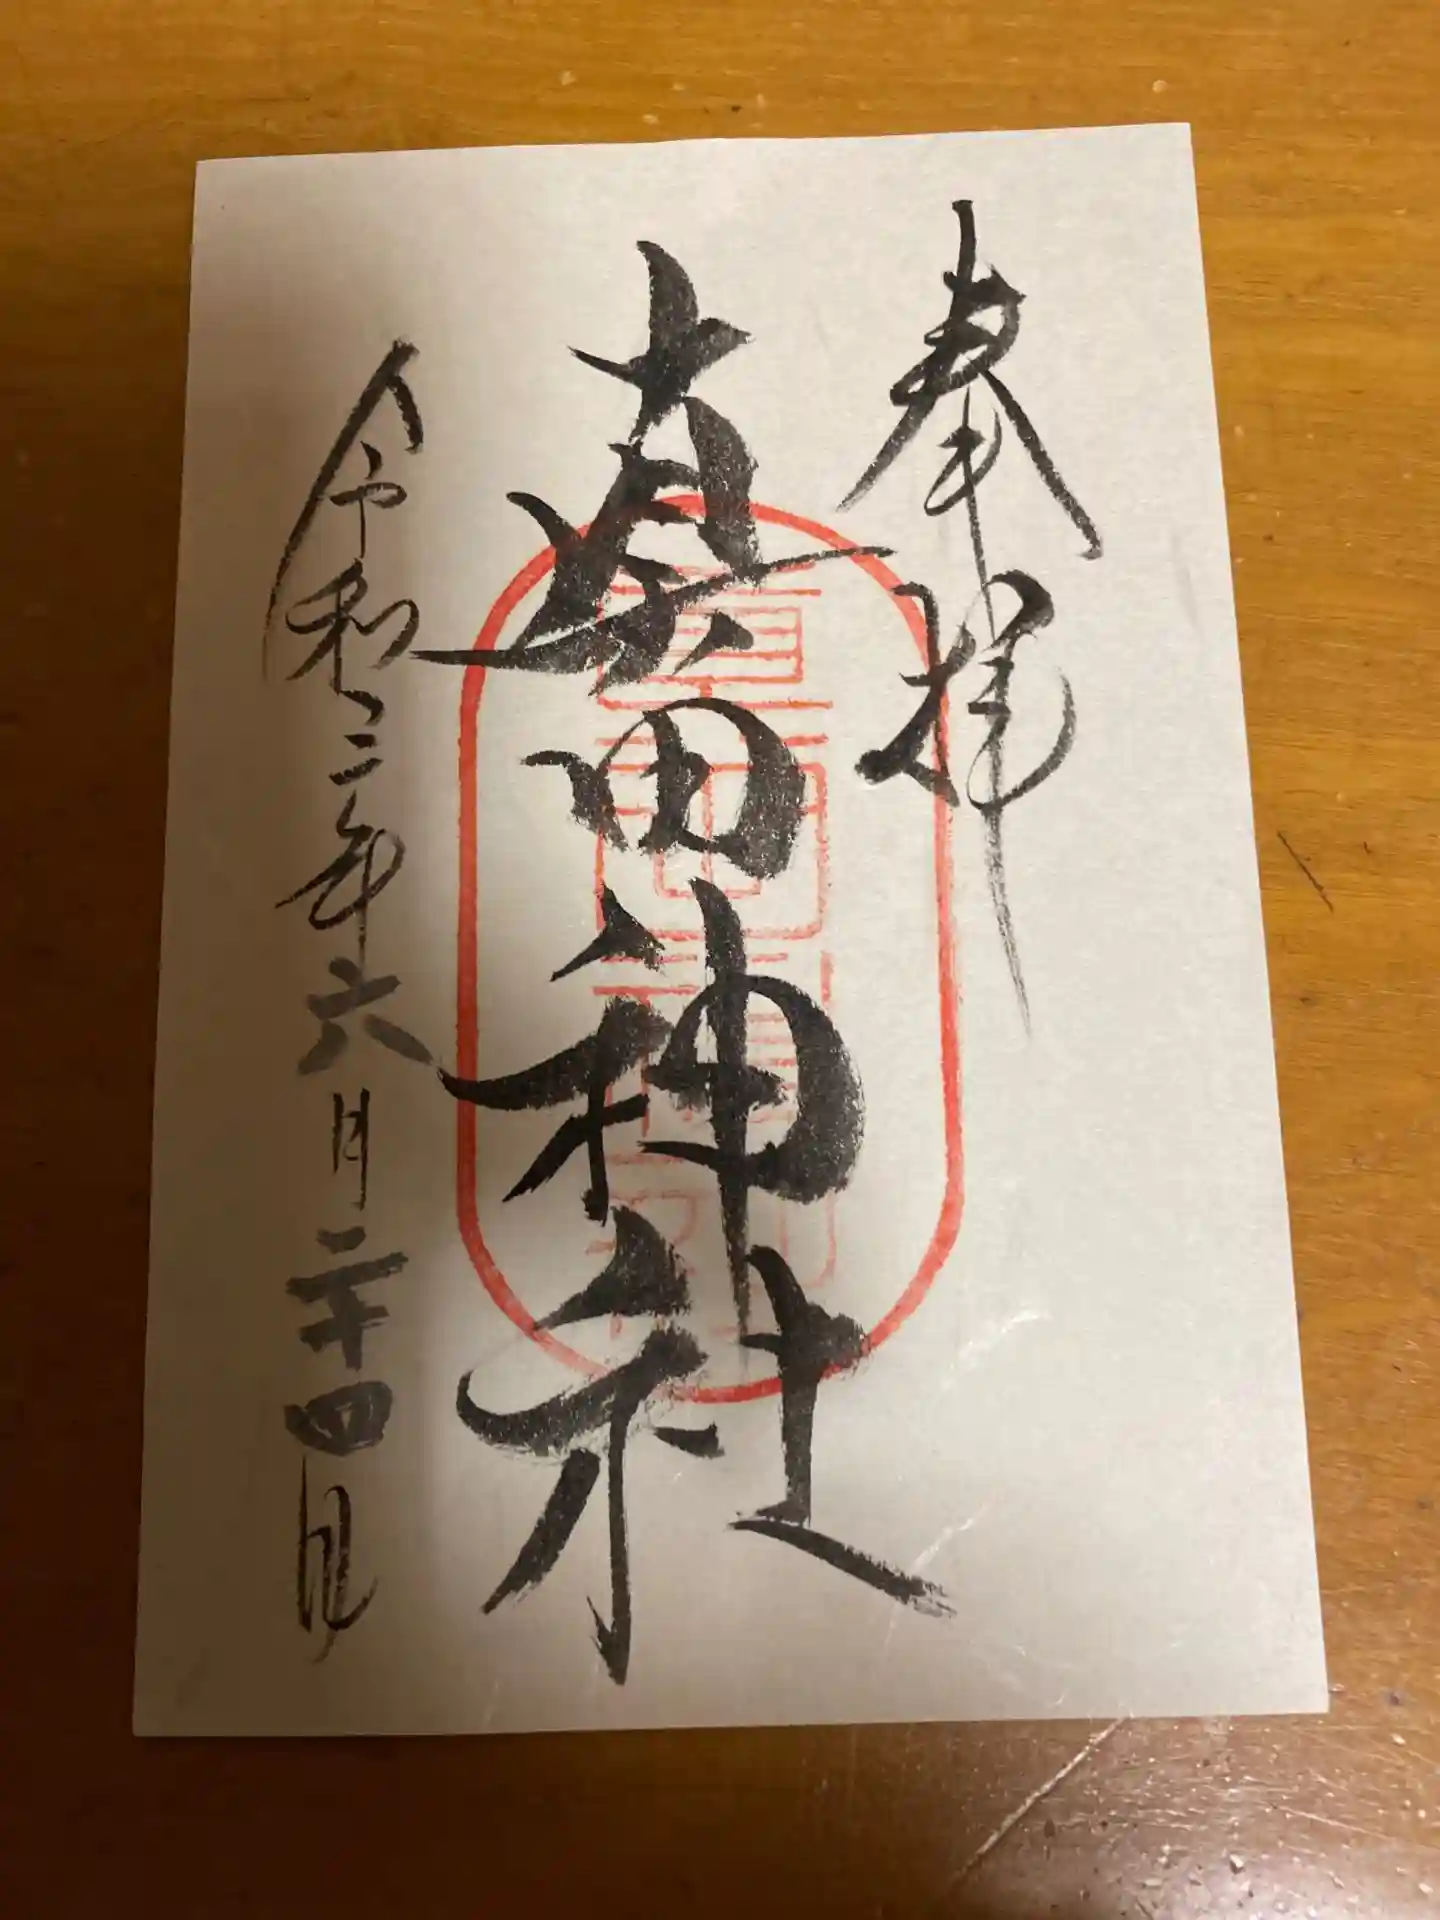 奉拝
真田神社
令和二年六月二十四日